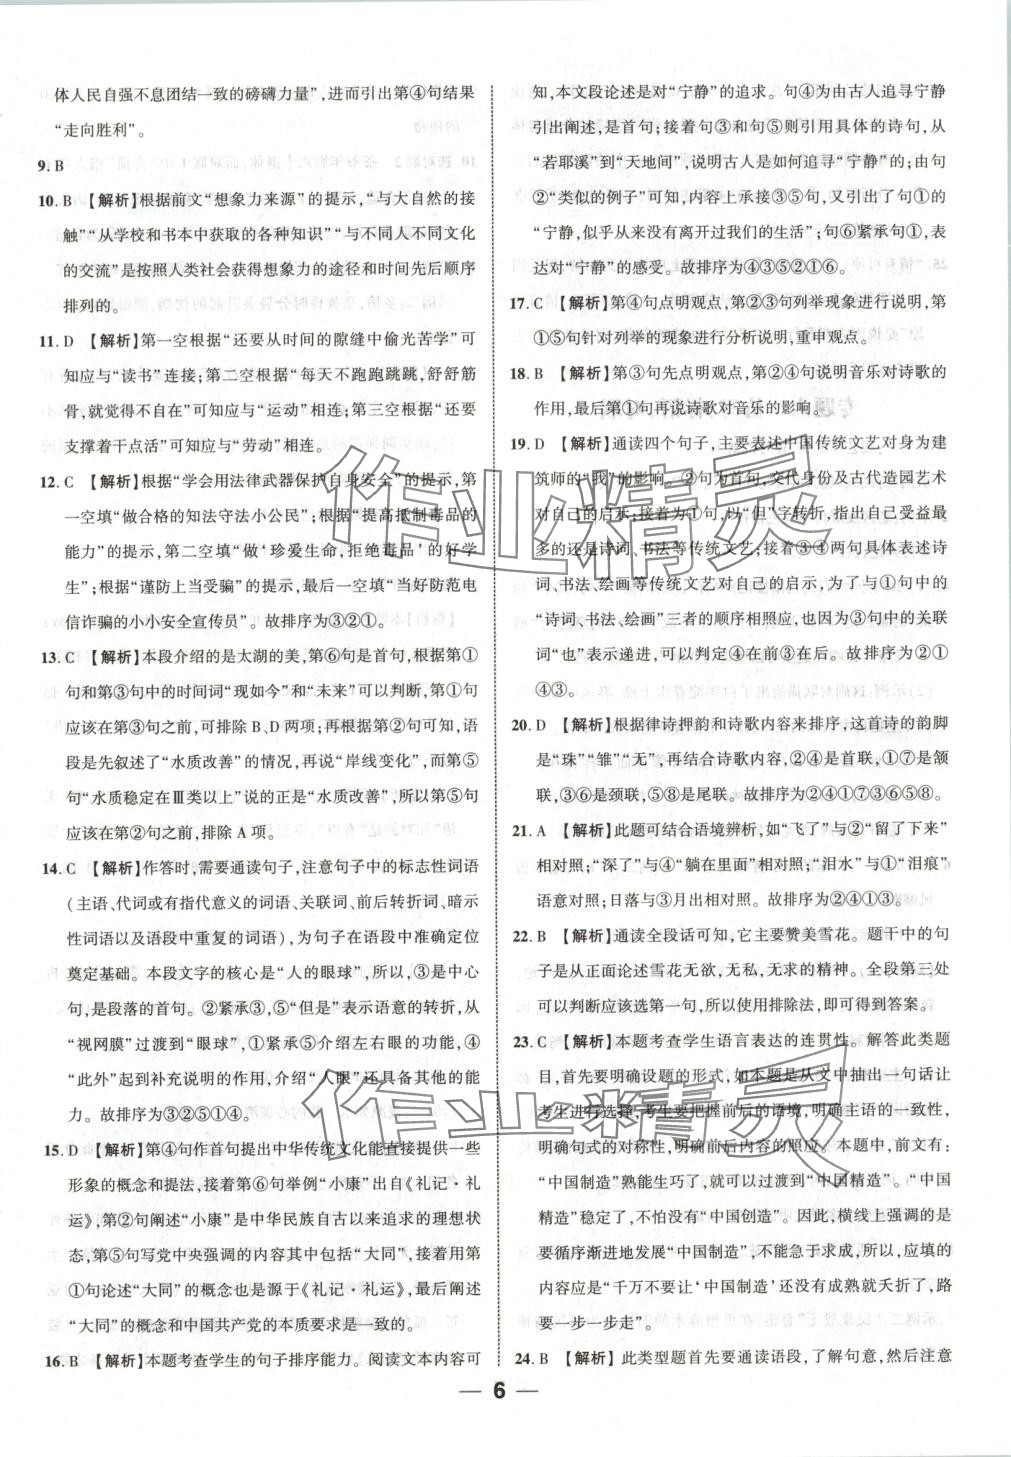 体人民自强不息团结一致的磅礴力量”,进而引出第④句结果
“走向胜利”。
9. B
10. B 【解析】根据前文“想象力来源”的提示,“与大自然的接
触”“从学校和书本中获取的各种知识”“与不同人不同文化
的交流”是按照人类社会获得想象力的途径和时间先后顺序
排列的。
11. D 【解析】第一空根据“还要从时间的隙缝中偷光苦学”可
知应与“读书”连接;第二空根据“每天不跑跑跳跳,舒舒筋
骨,就觉得不自在”可知应与“运动”相连;第三空根据“还要
支撑着干点活”可知应与“劳动”相连。
12. C 【解析】根据“学会用法律武器保护自身安全”的提示,第
一空填“做合格的知法守法小公民”;根据“提高抵制毒品的
能力”的提示,第二空填“做‘珍爱生命,拒绝毒品’的好学
生”;根据“谨防上当受骗”的提示,最后一空填“当好防范电
信诈骗的小小安全宣传员”。故排序为③②①。
13. C 【解析】本段介绍的是太湖的美,第⑥句是首句,根据第①
句和第③句中的时间词“现如今”和“未来”可以判断,第①句
应该在第③句之前,可排除 B、D 两项;再根据第②句可知,语
段是先叙述了“水质改善”的情况,再说“岸线变化”,而第⑤
句“水质稳定在Ⅲ类以上”说的正是“水质改善”,所以第⑤句
应该在第②句之前,排除 A 项。
14. C 【解析】作答时,需要通读句子,注意句子中的标志性词语
(主语、代词或有指代意义的词语、关联词、前后转折词、暗示
性词语以及语段中重复的词语),为句子在语段中准确定位
奠定基础。本段文字的核心是“人的眼球”,所以,③是中心
句,是段落的首句。②紧承③,⑤“但是”表示语意的转折,从
“视网膜”过渡到“眼球”,①紧承⑤介绍左眼右眼的功能,④
“此外”起到补充说明的作用,介绍“人眼”还具备其他的能
力。故排序为③②⑤①④。
15. D 【解析】第④句作首句提出中华传统文化能直接提供一些
形象的概念和提法,接着第⑥句举例“小康”出自《礼记·礼
运》,第②句阐述“小康”是中华民族自古以来追求的理想状
态,第⑤句写党中央强调的内容其中包括“大同”,接着用第
①句论述“大同”的概念也是源于《礼记·礼运》,最后阐述
“大同”的概念和中国共产党的本质要求是一致的。
16. B 【解析】本题考查学生的句子排序能力。阅读文本内容可
知,本文段论述是对“宁静”的追求。句④为由古人追寻宁静
引出阐述,是首句;接着句③和句⑤则引用具体的诗句,从
“若耶溪”到“天地间”,说明古人是如何追寻“宁静”的;由句
②“类似的例子”可知,内容上承接③⑤句,只是句①的
“宁静,似乎从来没有离开过我们的生活”;句⑥紧承句①,表
达对“宁静”的感受。故排序为④③⑤②①⑥。
17. C 【解析】第④句点明观点,第②③句列举现象进行说明,第
①⑤句针对列举的现象进行分析说明,重申观点。
18. B 【解析】第③句先点明观点,第②④句说明音乐对诗歌的
作用,最后第①句再说诗歌对音乐的影响。
19. D 【解析】通读四个句子,主要表述中国传统文艺对身为建
筑师的“我”的影响。②句为首句,交代身份及古代造园艺术
对自己的启示;接着为①句,以“但”字转折,指出自己受益最
多的还是诗词、书法等传统文艺;接着③④两句具体表述诗
词、书法、绘画等传统文艺对自己的启示,为了与①句中的
“诗词、书法、绘画”三者的顺序相照应,也因为③句中的关联
词“也”表示递进,可以判定④在前③在后。故排序为②①
④③。
20. D 【解析】根据律诗押韵和诗歌内容来排序,这首诗的韵脚
是“珠”“雏”“无”,再结合诗歌内容,②④是首联,①⑦是颔
联,③⑥是颈联,⑤⑧是尾联。故排序为②④①⑦③⑥⑤⑧。
21. A 【解析】此题可结合语境辨析,如“飞了”与②“留了下来”
相对照;“深了”与④“躺在里面”相对照;“泪水”与①“泪痕”
语意对照;日落与③月出相对照。故排序为②④①③。
22. B 【解析】通读全段话可知,它主要赞美雪花。题干中的句
子是从正面论述雪花无欲,无私,无求的精神。全段第三处
可以判断应该选第一句,所以使用排除法,即可得到答案。
23. C 【解析】本题考查学生语言表达的连贯性。解答此类题
目,首先要明确设题的形式,如本题是从文中抽出一句话让
考生进行选择,考生要把握前后的语境,明确主语的一致性,
明确句式的对称性,明确前后内容的照应。本题中,前文有:
“中国制造”熟能生巧了,就可以过渡到“中国精造”。“中国
精造”稳定了,不怕没有“中国创造”。因此,横线上强调的是
要循序渐进地发展“中国制造”,不能急于求成,所以,应填的
内容应是“千万不要让‘中国制造’还没有成熟就夭折了,路
要一步一步走”。
24. B 【解析】此类型题首先要通读语段,了解句意,然后注意
— 6 —
作业精灵
作业精灵